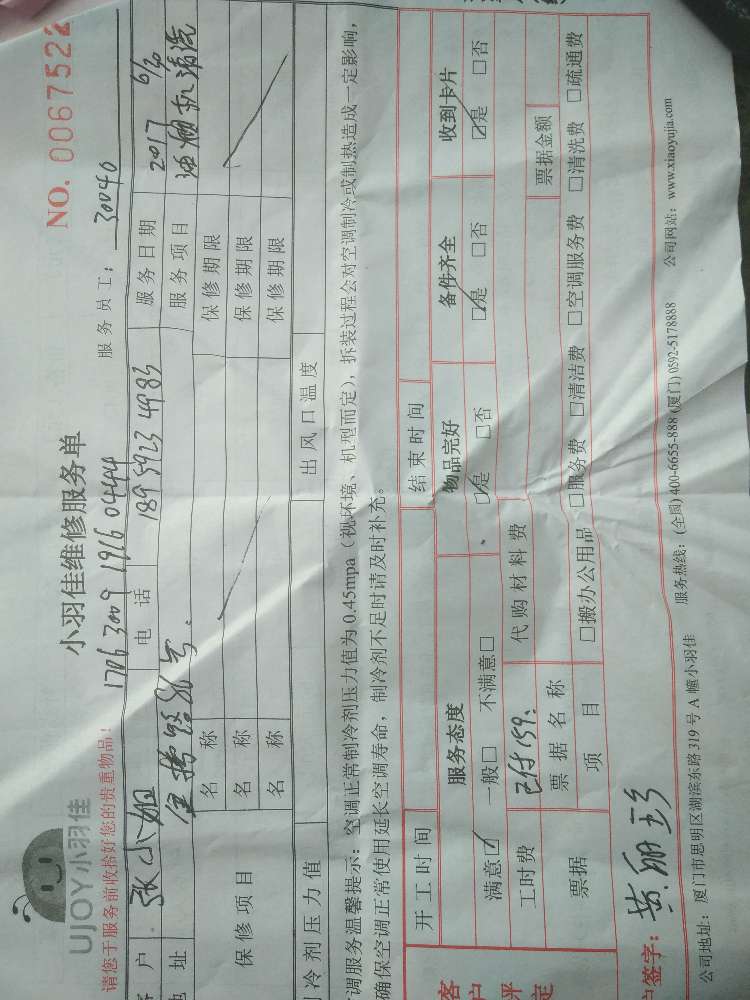 UJOY小羽佳
小羽佳维修服务单
NO. 0067522
请您于服务前收拾好您的贵重物品!
1706 3009 1916 04444
服务员工: 30040
客户 张小姐 电话 189 5923 4983 服务日期 2017 6/30
地址 86号. 服务项目 油烟机清洗
保修项目 名称 保修期限
名称 保修期限
名称 保修期限
制冷剂压力值 出风口温度
空调服务温馨提示:空调正常制冷剂压力值为0.45mpa(视环境、机型而定),拆装过程会对空调制冷或制热造成一定影响,
确保空调正常使用延长空调寿命,制冷剂不足时请及时补充。
客户评定
开工时间 结束时间
服务态度 物品完好 备件齐全 收到卡片
满意☑ 一般□ 不满意□ ☑是 □否 ☑是 □否 ☑是 □否
工时费 已付159. 代购材料费 票据金额
票据 票据名称
项目 □搬办公用品 □服务费 □清洁费 □空调服务费 □清洗费 □疏通费
户签字: 黄珊珍
公司地址:厦门市思明区湖滨东路319号A幢小羽佳 服务热线:(全国)400-6655-888 (厦门) 0592-5178888 公司网站:www.xiaoyujia.com